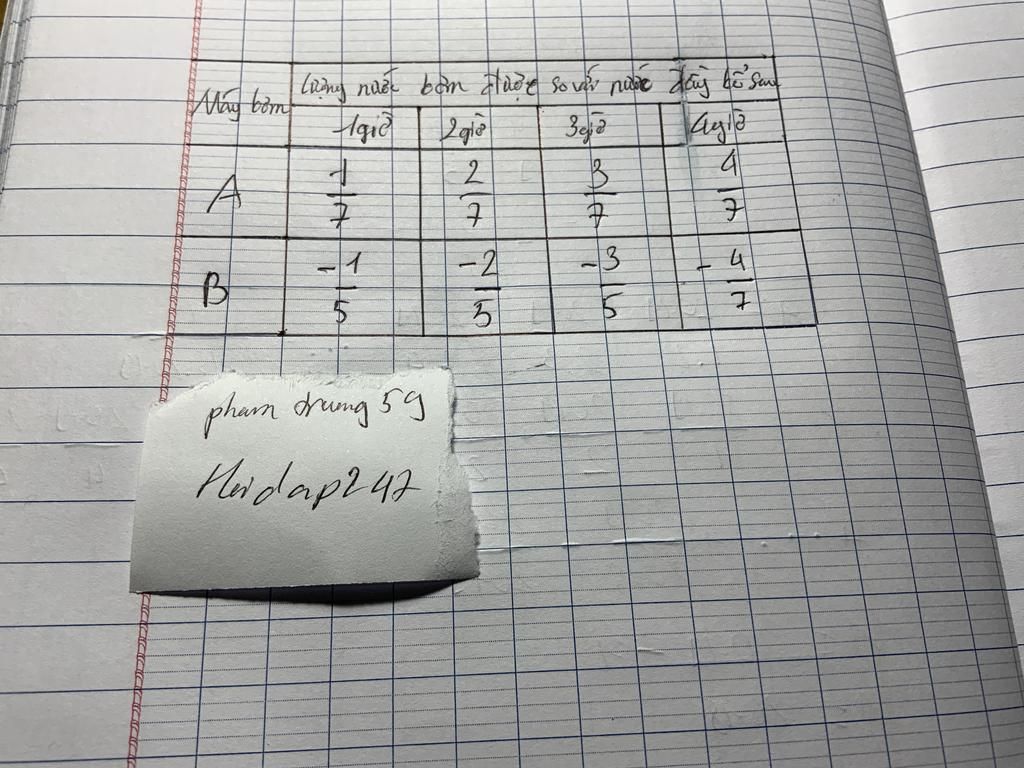 Máy bơm
Lượng nước bơm được so với nước đầy bể sau
1giờ 2giờ 3giờ 4giờ
A 1/7 2/7 3/7 4/7
B -1/5 -2/5 -3/5 -4/7
pham trương 5g
Hoidap247